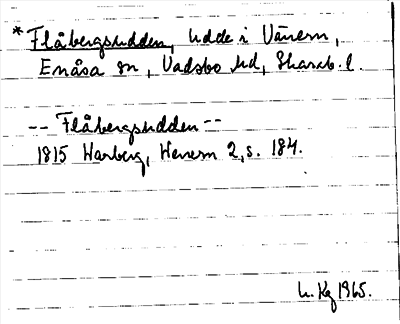 * Flåbergsudden, udde i Vänern,
Enåsa sn, Vadsbo hd, Skarab. l.
-- Flåbergsudden --
1815 Warberg, Wenern 2, s. 184.
L. Kg 1965.